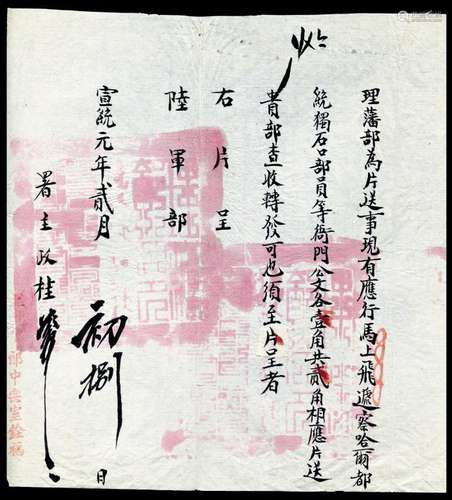 理藩部為片送事現有應行馬上飛遞察哈爾都
統獨石口部員等衙門公文各壹角共貳角相應片送
貴部查收轉發可也須至片呈者
右片呈
陸軍部
宣統元年貳月
初捌
日
署主政桂